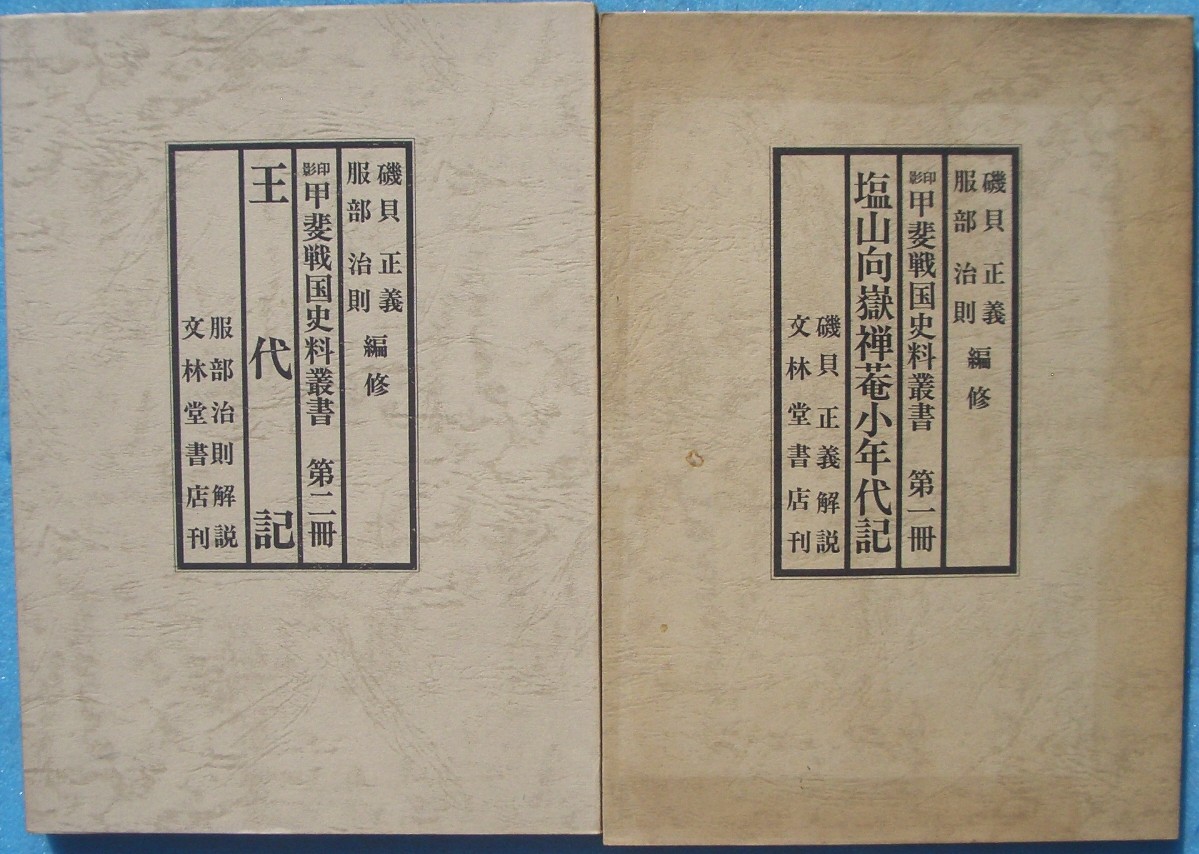 磯貝 正義
服部 治則 編修
影印 甲斐戦国史料叢書 第一冊
塩山向嶽禅菴小年代記
磯貝 正義 解説
文林堂書店刊
磯貝 正義
服部 治則 編修
影印 甲斐戦国史料叢書 第二冊
王代記
服部治則解説
文林堂書店刊